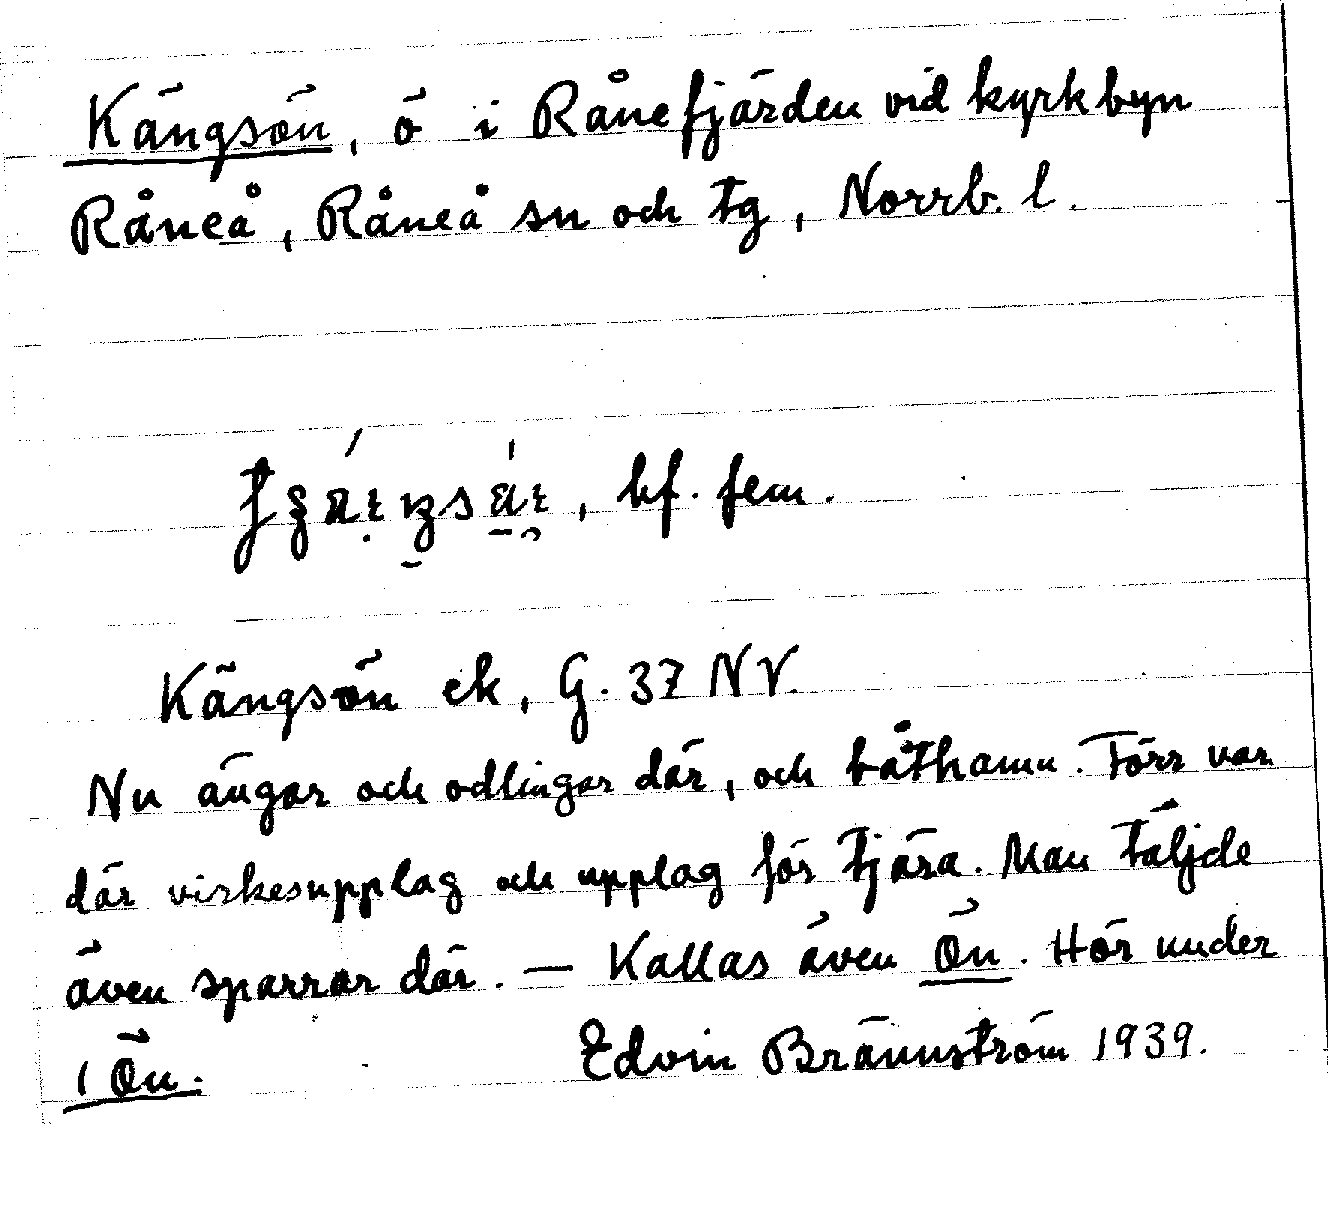 Kängsön, ö i Rånefjärden vid kyrkbyn
Råneå, Råneå sn och tg, Norrb. l.
bf. fem.
Kängsön ek, G. 37 NV.
Nu ängar och odlingar där, och båthamn. Förr var
där virkesupplag och upplag för tjära. Man täljde
även sparrar där. — Kallas även Ön. Hör under
1 Ön. Edvin Brännström 1939.